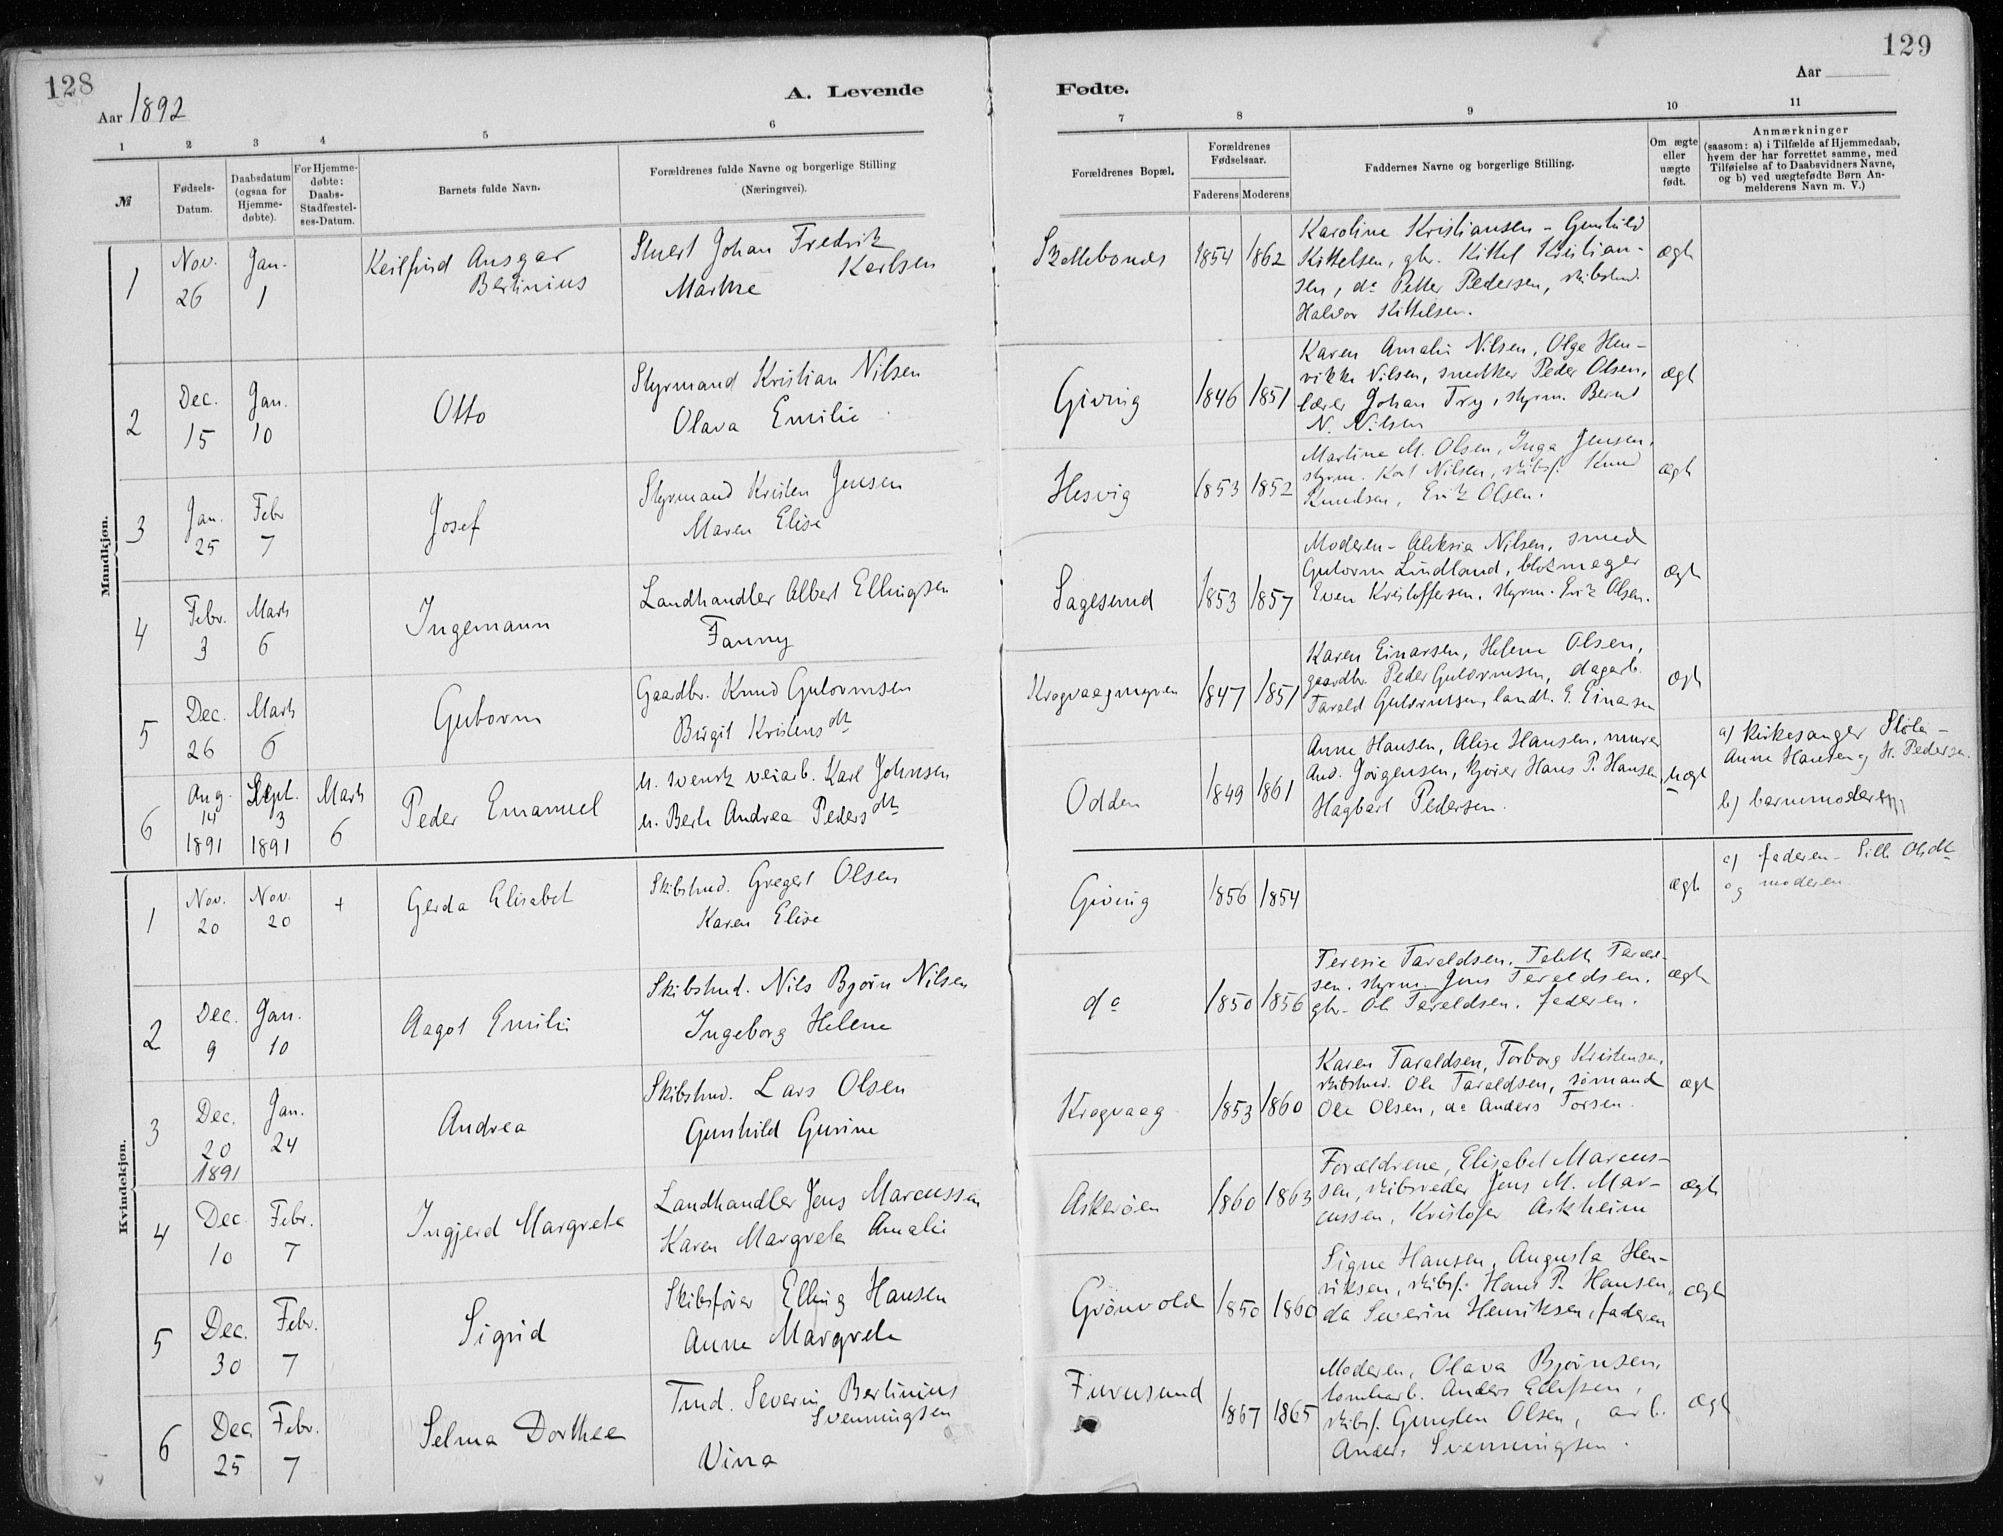 128
Aar 1892
A. Levende
1 2 3 4 5 6
№
Fødsels-
Datum.
Daabsdatum
(ogsaa for
Hjemme-
døbte).
For Hjemme-
døbte:
Daabs-
Stadfæstel-
ses-Datum.
Barnets fulde Navn.
Forældrenes fulde Navne og borgerlige Stilling
(Næringsvei).
129
Aar
Fødte.
7 8 9 10 11
Forældrenes Bopæl.
Forældrenes
Fødselsaar.
Faderens Moderens
Faddernes Navne og borgerlige Stilling.
Om ægte
eller
uægte
født.
Anmærkninger
(saasom: a) i Tilfælde af Hjemmedaab,
hvem der har forrettet samme, med
Tilføielse af to Daabsvidners Navne,
og b) ved uægtefødte Børn An-
melderens Navn m. V.)
Mandkjøn.
1
Nov.
26
Jan.
1
Keilfrid Ansgar
Bertinius
Stuert Johan Fredrik
Karlsen
Marthe
1854 1862
Karoline Kristiansen - Gunhild
Kittelsen, gbr. Kittel Kristian-
sen, do Petter Pedersen, skibstmd.
Halvor Kittelsen.
ægt
2
Dec.
15
Jan.
10
Otto
Styrmand Kristian Nilsen
Olava Emilie
Giving
1846 1851
Karen Amalie Nilsen, Olga Hen-
rikke Nilsen, snedker Peder Olsen,
lærer Johan Try, styrm. Bernt
N. Nilsen
ægt
3
Jan.
25
Febr
7
Josef
Styrmand Kristen Jensen
Maren Elise
Hesvig
1853 1852
Martine M. Olsen, Inga Jensen,
styrm. Karl Nilsen, skibsf. Knud
Knudsen, Erik Olsen.
ægt
4
Febr.
3
Marts
6
Ingemann
Landhandler Albert Ellingsen
Fanny
Sagesund
1853 1857
Moderen - Aleksia Nilsen, smed
Gutorm Lindland, blokmager
Even Kristoffersen, styrm. Erik Olsen.
ægt
5
Dec.
26
Marts
6
Gutorm
Gaardbr. Knud Gutormsen
Birgit Kristensdt
Krogvaagmyren
1847 1851
Karen Einarsen, Helene Olsen,
gaardbr. Peder Gutormsen, dagarb.
Tarald Gutormsen, landh. E. Einarsen
ægt
6
Aug.
14
1891
Sept.
3
1891
Marts
6
Peder Emanuel
U. svensk veiarb. Karl Johnsen
U. Berte Andrea Pedersdt
Odden
1849 1861
Anne Hansen, Alise Hansen, murer
And. Jørgensen, kjører Hans P. Hansen,
Hagbart Pedersen.
Uægt
a) Kirkesanger Sløle -
Anne Hansen og H. Pedersen.
b) barnemoderen
Kvindekjøn.
1
Nov.
20
Nov.
20
+
Gerda Elisabet
Skibstmd. Gregert Olsen
Karen Elise
Giving
1856 1854
ægt
a) faderen - Sille Olsdt
og moderen
2
Dec.
9
Jan.
10
Aagot Emilie
Skibstmd. Nils Bjørn Nilsen
Ingeborg Helene
do
1850 1856
Teresie Taraldsen, Talette Tarald-
sen. styrm. Jens Taraldsen,
gbr. Ole Taraldsen, faderen.
ægt
3
Dec.
20
1891
Jan.
24
Andrea
Skibstmd. Lars Olsen
Gunhild Gurine
Krogvaag
1853 1860
Karen Taraldsen, Torborg Kristensen,
skibstmd. Ole Taraldsen, sømand
Ole Olsen, do Anders Torsen.
ægt
4
Dec.
10
Febr.
7
Ingjerd Margrete
Landhandler Jens Marcussen
Karen Margrete Amalie
Askerøen
1860 1863
Forældrene, Elisabet Marcus-
sen, skibsreder Jens M. Mar-
cussen, Kristofer Askheim
ægte
5
Dec.
30
Febr.
7
Sigrid
Skibsfører Elling Hansen
Anne Margrete
Grønvold
1850 1860
Signe Hansen, Augusta Hen-
riksen, skibsf. Hans P. Hansen,
do Severin Henriksen, faderen
ægt
6
Dec.
25
Febr.
7
Selma Dorthee
Tmd. Severin Bertinius
Svenningsen
Vina
Furusund
1867 1865
Moderen, Olava Bjørnsen,
tomtarb. Anders Ellefsen,
skibsf. Gunsten Olsen, arb.
Anders Svenningsen.
ægt